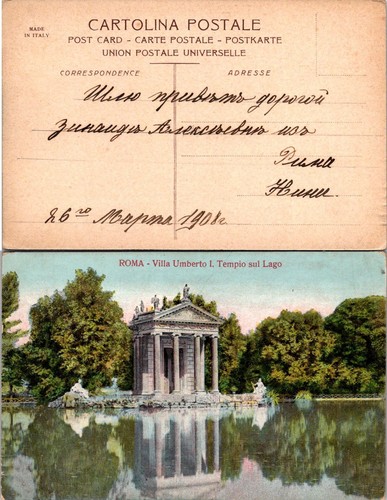 MADE
IN ITALY
CARTOLINA POSTALE
POST CARD - CARTE POSTALE - POSTKARTE
UNION POSTALE UNIVERSELLE
CORRESPONDENCE
ADRESSE
Шлю приветъ дорогой
Зинаидѣ Алексѣевнѣ изъ
Рима
Нина.
26го Марта 1908г
ROMA - Villa Umberto I. Tempio sul Lago